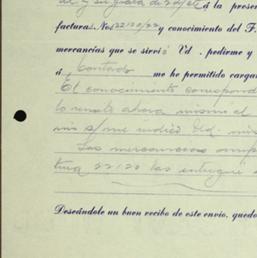 á la presen
factura. No. 22120/22 y conocimiento del F.
mercancías que se sirvió Ud. pedirme y
á Contado me ha permitido cargar
El conocimiento correspond
lo remito ahora mismo al
mis s/me indicó Ud. mis
Las mercancías
tura 22122 las entregué
Deseándole un buen recibo de este envío, quedo